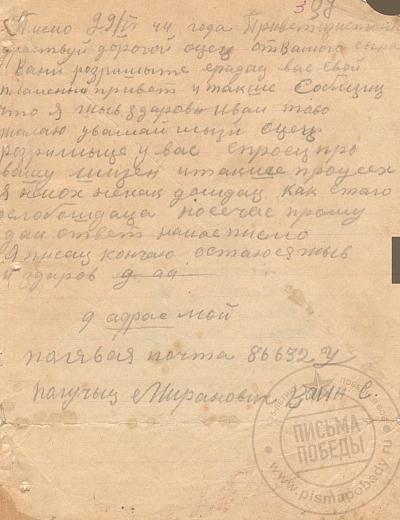 397
Писмо 29/IV 44 года Привет
здраствуй дорогой оцец от Вашого сына
Вани розришыте ерадац вас свой
пламены привет и такше Собщиц
что я жыв здаров и Вам таво
жалаю уважаймыи оцец
розришыце у вас спросиц про
вашу жызен и такшее про усех
Я ниох некац дашдац как стаго
слобошдаца посечас прошу
дац ответ на мое писмо
Я писац кончаю остаюся жыв
и здаров д ад
д адрас мой
палявая почта 86692 У
палучыц Миранович Вани С.
ПИСЬМА ПОБЕДЫ
www.pismapobedy.ru